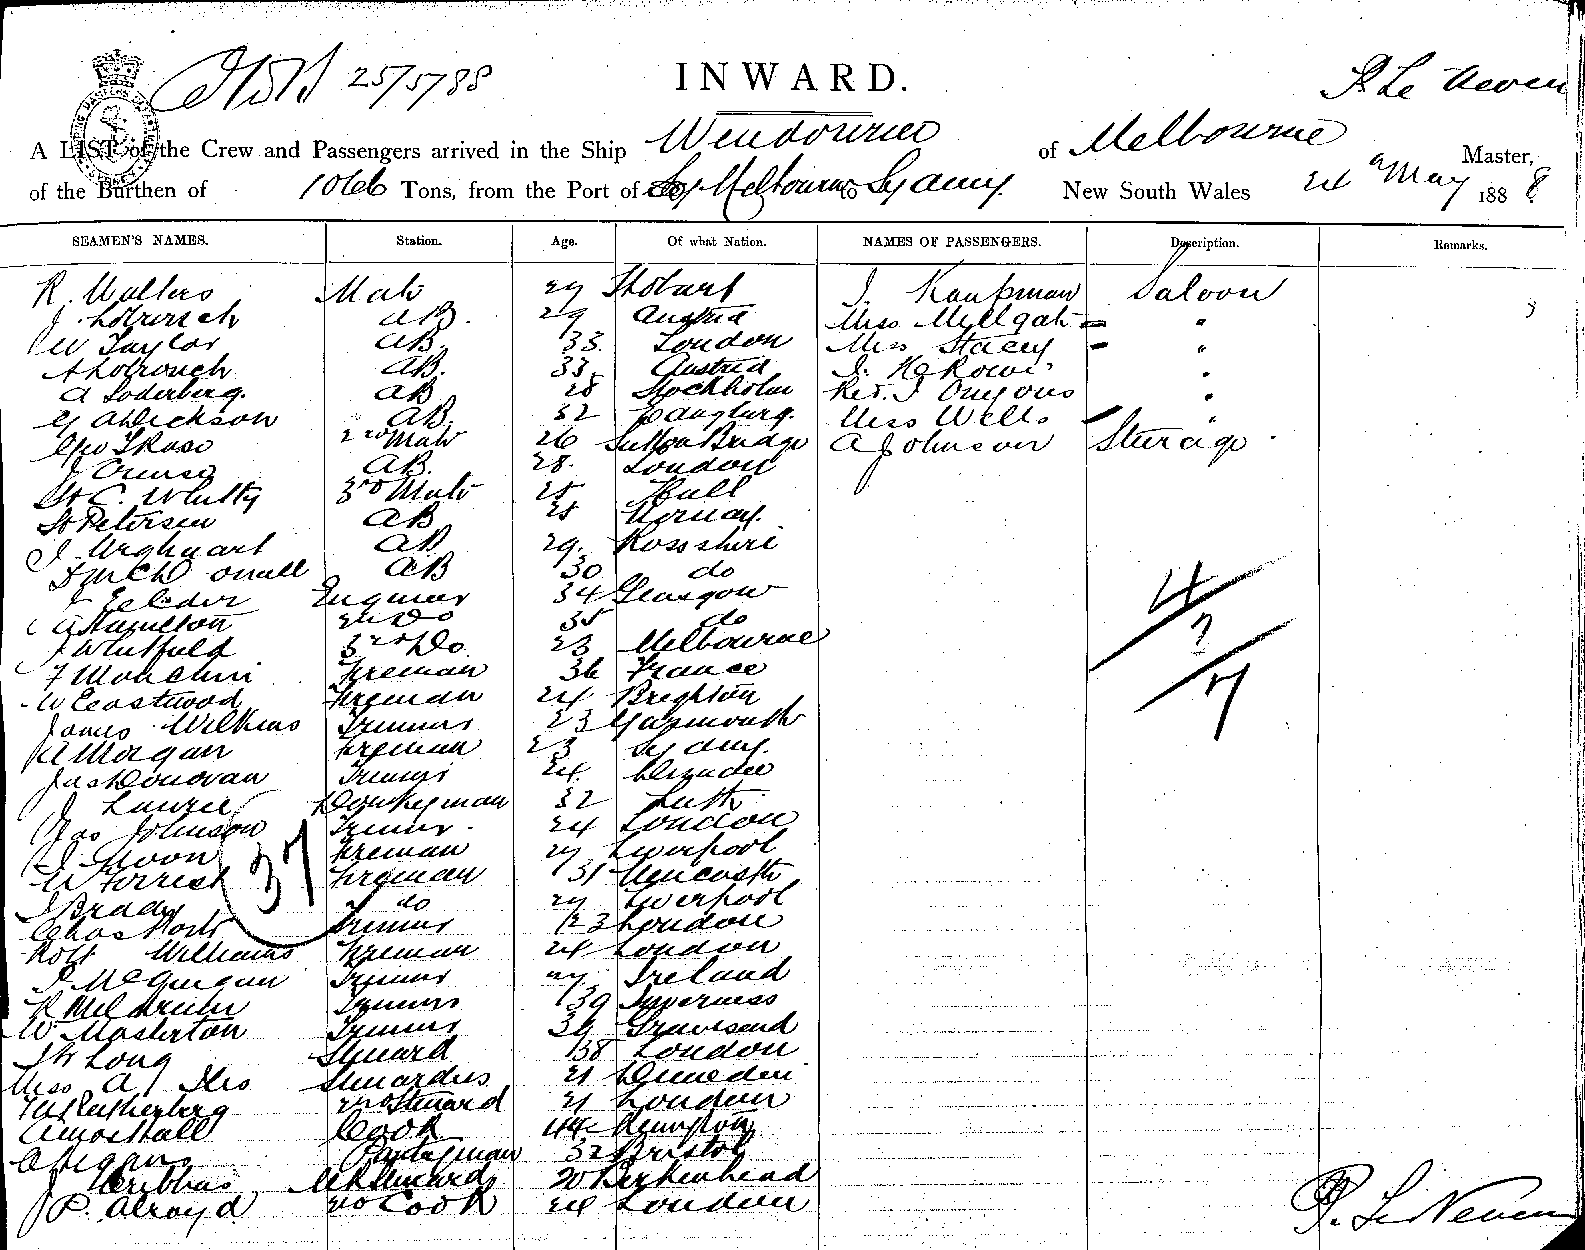 25/5/88
INWARD.
A LIST of the Crew and Passengers arrived in the Ship Wendouree of Melbourne Master,
of the Burthen of 1066 Tons, from the Port of Melbourne to Sydney New South Wales 24 May 1888
SEAMEN'S NAMES. Station. Age. Of what Nation. NAMES OF PASSENGERS. Description. Remarks.
R. Walters Mate 29 Hobart J. Kaufman Saloon
J. AB. 29 Austria Miss Millgate "
W Taylor AB. 33. London Miss Stacey "
AB. 33. Austria "
A Soderberg. AB 28 Stockholm Rev. J Onyons "
G A Dickson AB. 32 Miss Wells "
Geo T Rose 2nd Mate 26 Sutton Bridge A Johnson Sterage
J AB. 28. London
H C. Whitty 3rd Mate 25 Hull
H Petersen AB 25 Norway.
J. Urghuart AB 29. Rossshire
AB 30 do
J Engineer 34 Glasgow
A Hamilton 2nd Do 35 do
J Whitfield 3rd Do. 23 Melbourne
F Fireman 36 France
W Eastwood Fireman 24 Brighton
James Wilkins Trimmer 23 Yarmouth
A Morgan Fireman 23 Sydney.
Jas Donovan Trimmer 24. Dundee
J Laurie Donkeyman 32 Leith
Jas Johnson Trimmer. 24 London
J Moon Fireman 29 Liverpool
W Forrest Fireman 31 Newcastle
J Brady do 29 Liverpool
Chas Trimmer 23 London
Robt Williams Fireman 24 London
P McGuigan Trimmer 29 Ireland
R Meldrum Trimmer 39 Inverness
W Masterton Trimmer 39 Gravesend
J H Long Steward 38 London
Miss A Stewardess 21 Dunedin
2nd Steward 21 London
Amos Hall Cook 44
Pantryman 32 Bristol
J Gribbins Steward 20 Berkenhead
J P. Alroyd 2nd Cook 24 London
4
7
37